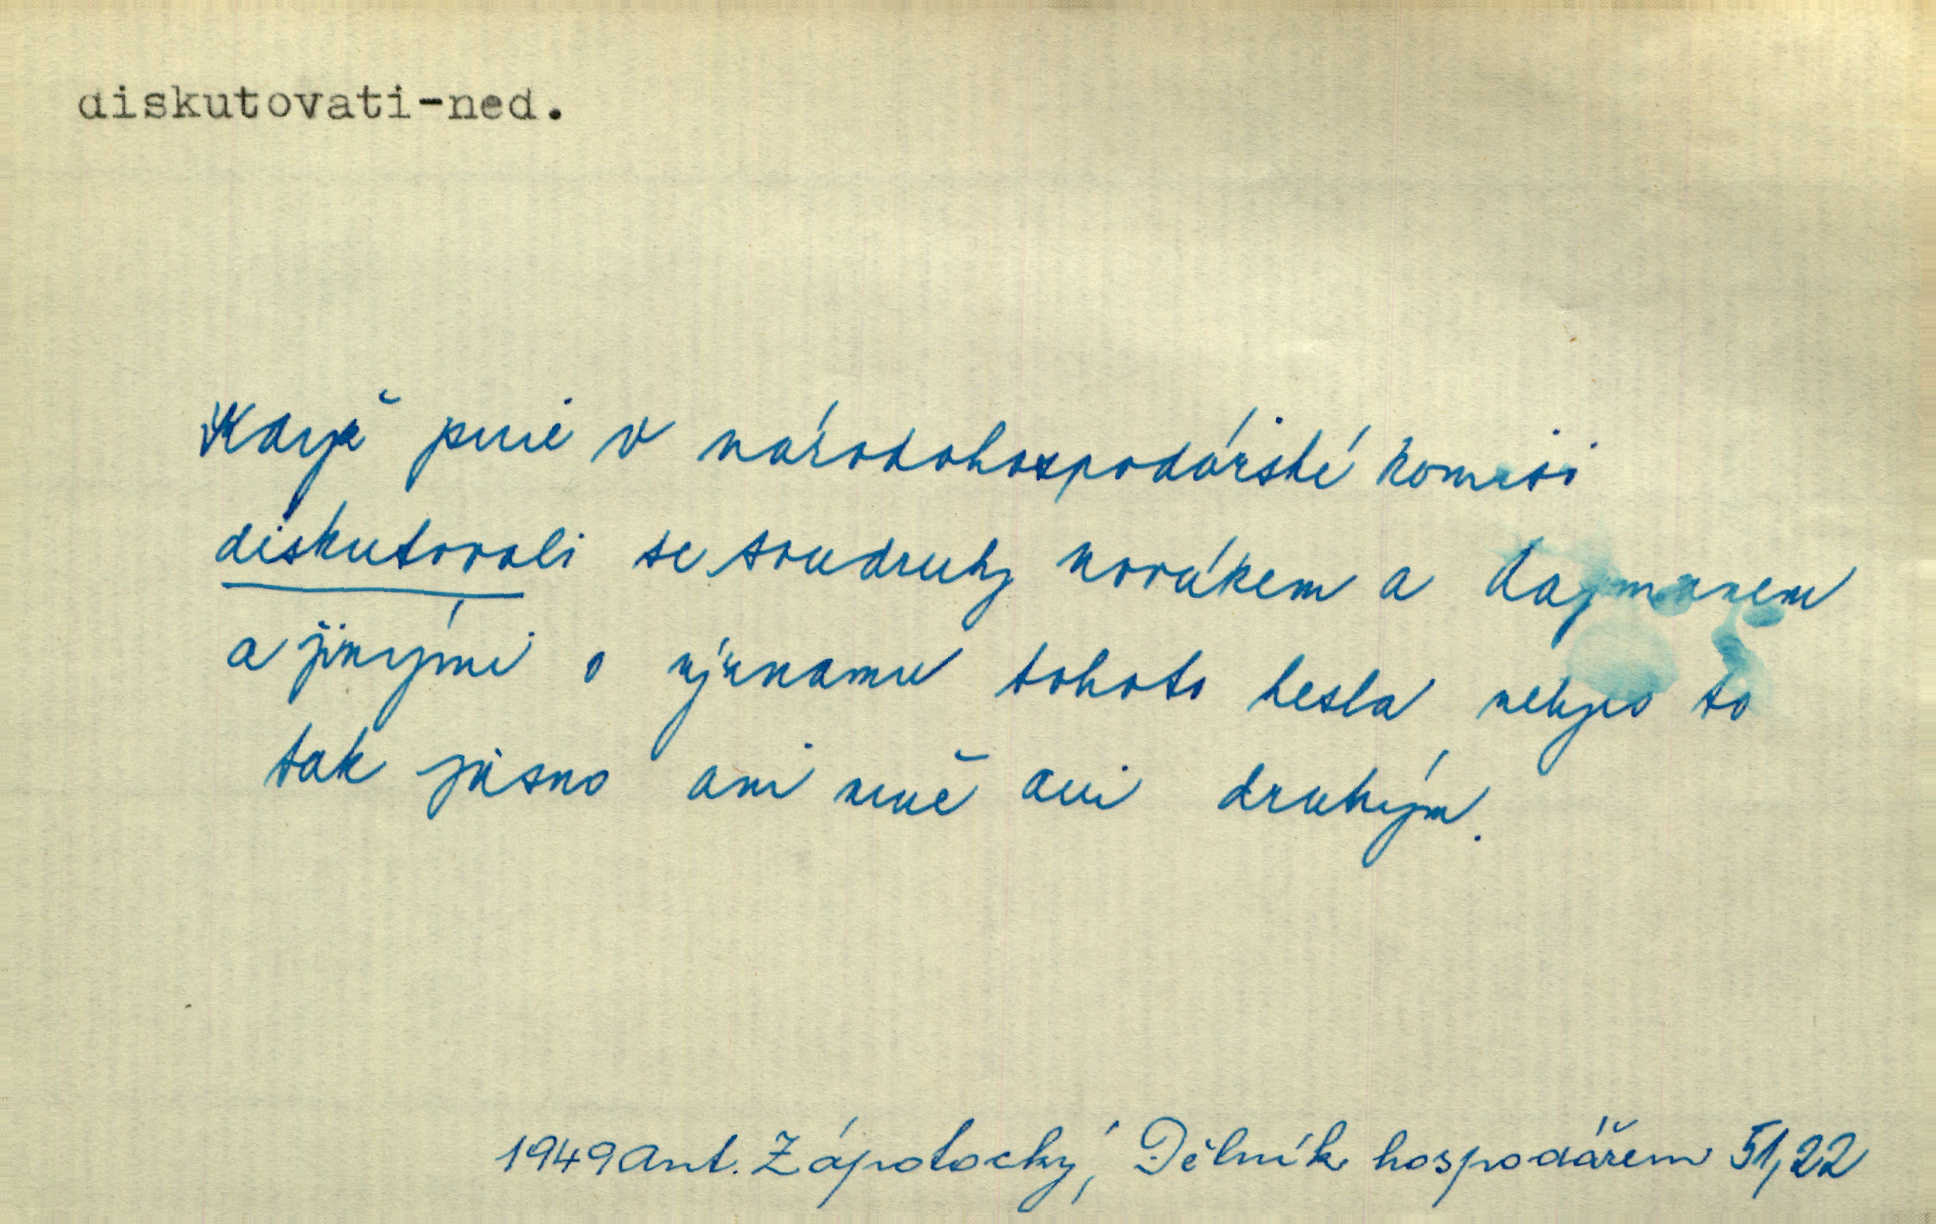 diskutovati-ned.
Když jsme v národohospodářské komisi
diskutovali se soudruhy Novákem a
a jinými o významu tohoto hesla nebylo to
tak jasno ani mně ani druhým.
1949 Ant. Zápotocký, Dělník hospodářem 51,22